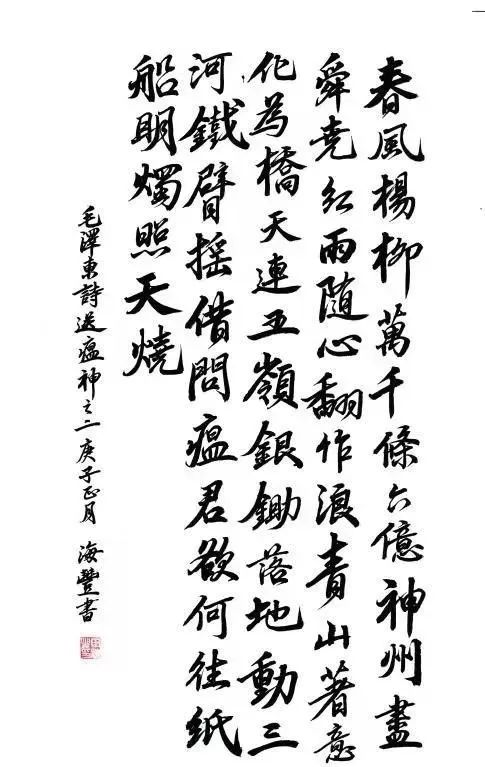 春風楊柳萬千條六億神州盡
舜堯紅雨隨心翻作浪青山著意
化為橋天連五嶺銀鋤落地動三
河鐵臂搖借問瘟君欲何往紙
船明燭照天燒
毛澤東詩送瘟神之二庚子正月 海豐書